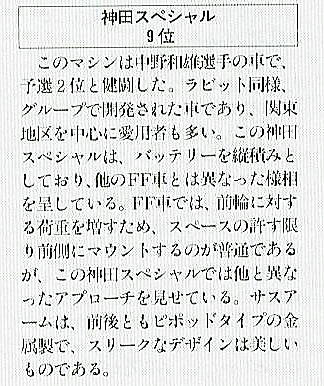 神田スペシャル
9位
このマシンは中野和雄選手の車で、
予選2位と健闘した。ラビット同様、
グループで開発された車であり、関東
地区を中心に愛用者も多い。この神田
スペシャルは、バッテリーを縦積みと
しており、他のFF車とは異なった様相
を呈している。FF車では、前輪に対す
る荷重を増すため、スペースの許す限
り前側にマウントするのが普通である
が、この神田スペシャルでは他と異な
ったアプローチを見せている。サスア
ームは、前後ともピボッドタイプの金
属製で、スリークなデザインは美しい
ものである。